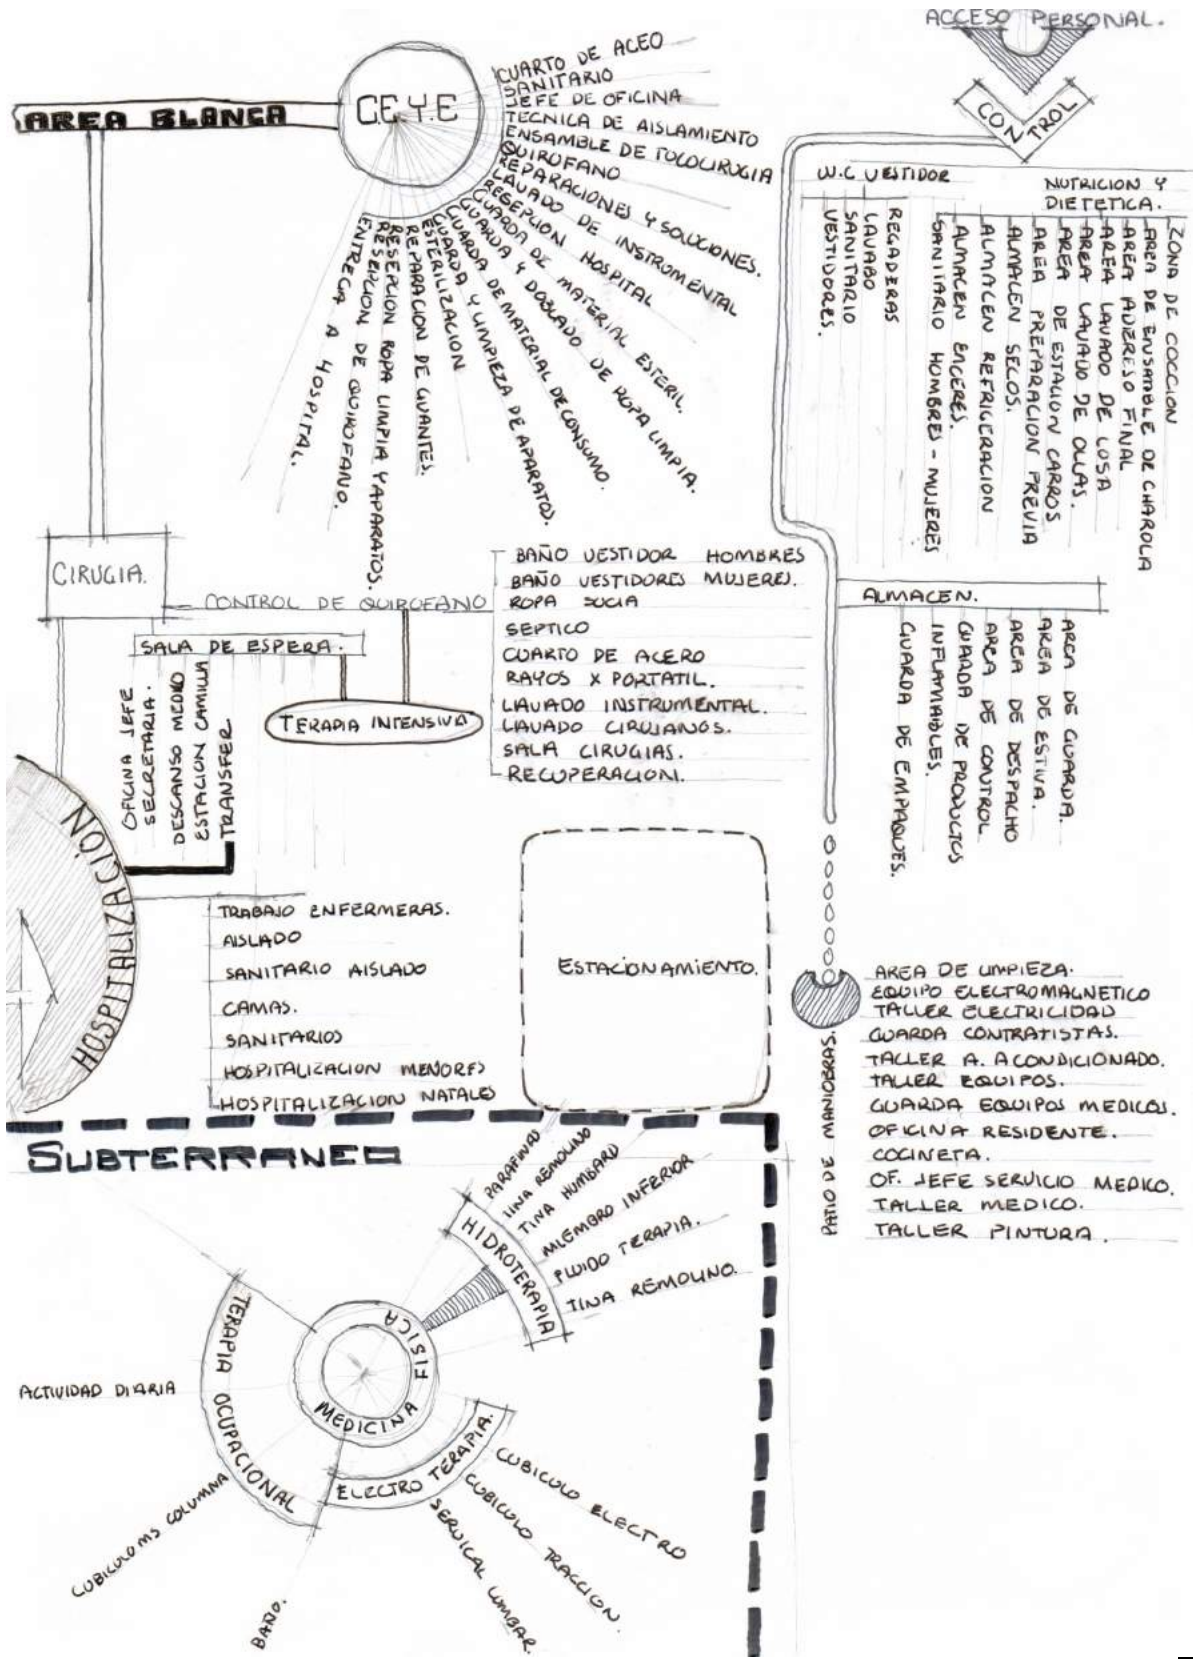 ACCESO PERSONAL.
CONTROL
AREA BLANCA
C.E.Y.E
CUARTO DE ACEO
SANITARIO
JEFE DE OFICINA
TECNICA DE AISLAMIENTO
ENSAMBLE DE TOCOCIRUGIA
QUIROFANO
REPARACIONES Y SOLUCIONES.
LAVADO DE INSTRUMENTAL
RESEPCION HOSPITAL
GUARDA DE MATERIAL ESTERIL.
GUARDA Y DOBLADO DE ROPA LIMPIA.
GUARDA DE MATERIAL DE CONSUMO.
GUARDA Y LIMPIEZA DE APARATOS.
ESTERILIZACION
REPARACION DE GUANTES.
RESEPCION ROPA LIMPIA Y APARATOS.
RESEPCION DE QUIROFANO.
ENTREGA A HOSPITAL.
W.C VESTIDOR
REGADERAS
LAVABO
SANITARIO
VESTIDORES.
NUTRICION Y
DIETETICA.
ZONA DE COCCION
AREA DE ENSABLE DE CHAROLA
AREA ADERESO FINAL
AREA LAVADO DE LOSA
AREA LAVADO DE OLLAS.
AREA DE ESTACION CARROS
AREA PREPARACION PREVIA
ALMACEN SECOS.
ALMACEN REFRIGERACION
ALMACEN ENCERES.
SANITARIO HOMBRES - MUJERES
CIRUGIA.
CONTROL DE QUIROFANO
BAÑO VESTIDOR HOMBRES
BAÑO VESTIDORES MUJERES.
ROPA SUCIA
SEPTICO
CUARTO DE ACERO
RAYOS X PORTATIL.
LAVADO INSTRUMENTAL.
LAVADO CIRUJANOS.
SALA CIRUGIAS.
RECUPERACION.
SALA DE ESPERA.
TERAPIA INTENSIVA
OFICINA JEFE
SECRETARIA.
DESCANSO MEDICO
ESTACION CAMILLA
TRANSFER
ALMACEN.
AREA DE GUARDA.
AREA DE ESTIVA.
AREA DE DESPACHO
AREA DE CONTROL
GUARDA DE PRODUCTOS
INFLAMABLES.
GUARDA DE EMPAQUES.
HOSPITALIZACIÓN
TRABAJO ENFERMERAS.
AISLADO
SANITARIO AISLADO
CAMAS.
SANITARIOS
HOSPITALIZACION MENORES
HOSPITALIZACION NATALES
ESTACIONAMIENTO.
PATIO DE MANIOBRAS.
AREA DE LIMPIEZA.
EQUIPO ELECTROMAGNETICO
TALLER ELECTRICIDAD
GUARDA CONTRATISTAS.
TALLER A. ACONDICIONADO.
TALLER EQUIPOS.
GUARDA EQUIPOS MEDICOS.
OFICINA RESIDENTE.
COCINETA.
OF. JEFE SERVICIO MEDICO.
TALLER MEDICO.
TALLER PINTURA.
SUBTERRANEO
MEDICINA FISICA
HIDROTERAPIA
PARAFINAS
TINA REMOLINO
TINA HUMBARD
MIEMBRO INFERIOR
FLUIDO TERAPIA.
TINA REMOLINO.
TERAPIA OCUPACIONAL
ACTIVIDAD DIARIA
CUBICULO MS COLUMNA
BAÑO.
ELECTRO TERAPIA.
CUBICULO ELECTRO
CUBICULO TRACCION.
SERVICAL LUMBAR.